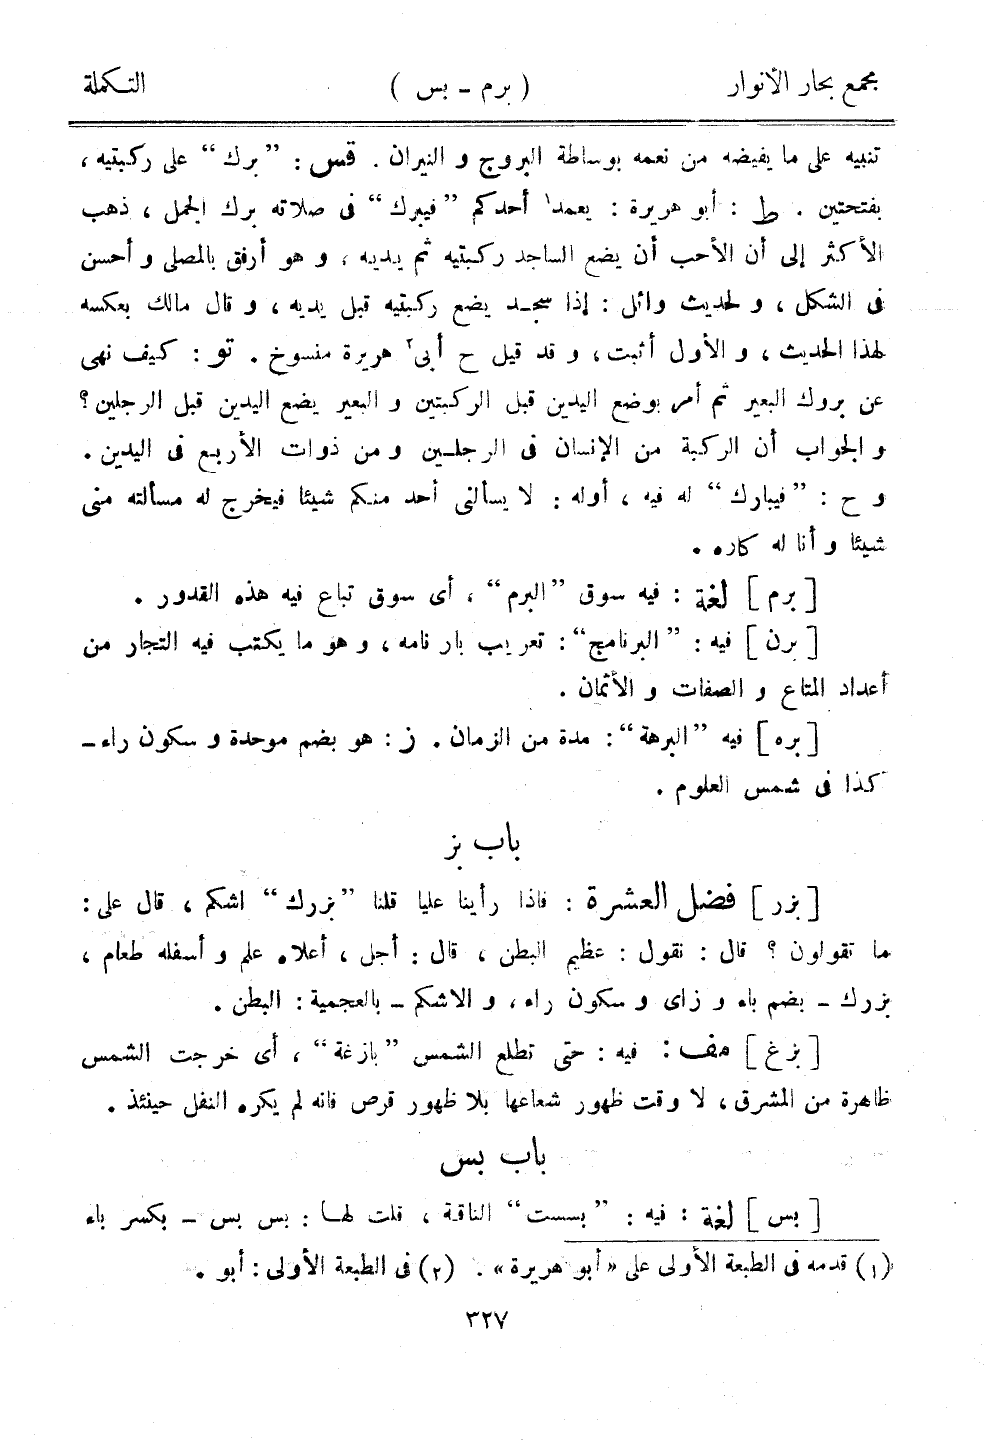 مجمع بحار الأنوار ( برم - بس ) التكملة
تنبيه على ما يفيضه من نعمه بوساطة البروج و النيران . قس : ”برك“ على ركبتيه ،
بفتحتين . ط : أبو هريرة : يعمد١ أحدكم ”فيبرك“ فى صلاته برك الجمل ، ذهب
الأكثر إلى أن الأحب أن يضع الساجد ركبتيه ثم يديه ، و هو أرفق بالمصلى و أحسن
فى الشكل ، و لحديث وائل : إذا سجد يضع ركبتيه قبل يديه ، و قال مالك بعكسه
لهذا الحديث ، و الأول أثبت ، و قد قيل ح أبى٢ هريرة منسوخ . تو : كيف نهى
عن بروك البعير ثم أمر بوضع اليدين قبل الركبتين و البعير يضع اليدين قبل الرجلين ؟
و الجواب أن الركبة من الإنسان فى الرجلين و من ذوات الأربع فى اليدين .
و ح : ”فيبارك“ له فيه ، أوله : لا يسألنى أحد منكم شيئا فيخرج له مسألته منى
شيئا و أنا له كاره .
[ برم ] لغة : فيه سوق ”البرم“ ، أى سوق تباع فيه هذه القدور .
[ برن ] فيه : ”البرنامج“ : تعريب بار نامه ، و هو ما يكتب فيه التجار من
أعداد المتاع و الصفات و الأثمان .
[ بره ] فيه ”البرهة“ : مدة من الزمان . ز : هو بضم موحدة و سكون راء -
كذا فى شمس العلوم .
باب بز
[ بزر ] فضل العشرة : فاذا رأينا عليا قلنا ”بزرك“ اشكم ، قال على :
ما تقولون ؟ قال : نقول : عظيم البطن ، قال : أجل ، أعلاه علم و أسفله طعام ،
بزرك - بضم باء و زاى و سكون راء ، و الاشكم - بالعجمية : البطن .
[ بزغ ] مف : فيه : حتى تطلع الشمس ”بازغة“ ، أى خرجت الشمس
ظاهرة من المشرق ، لا وقت ظهور شعاعها بلا ظهور قرص فانه لم يكره النفل حينئذ .
باب بس
[ بس ] لغة : فيه : ”بسست“ الناقة ، قلت لها : بس بس - بكسر باء
(١) قدمه فى الطبعة الأولى على «أبو هريرة» . (٢) فى الطبعة الأولى : أبو .
٣٢٧